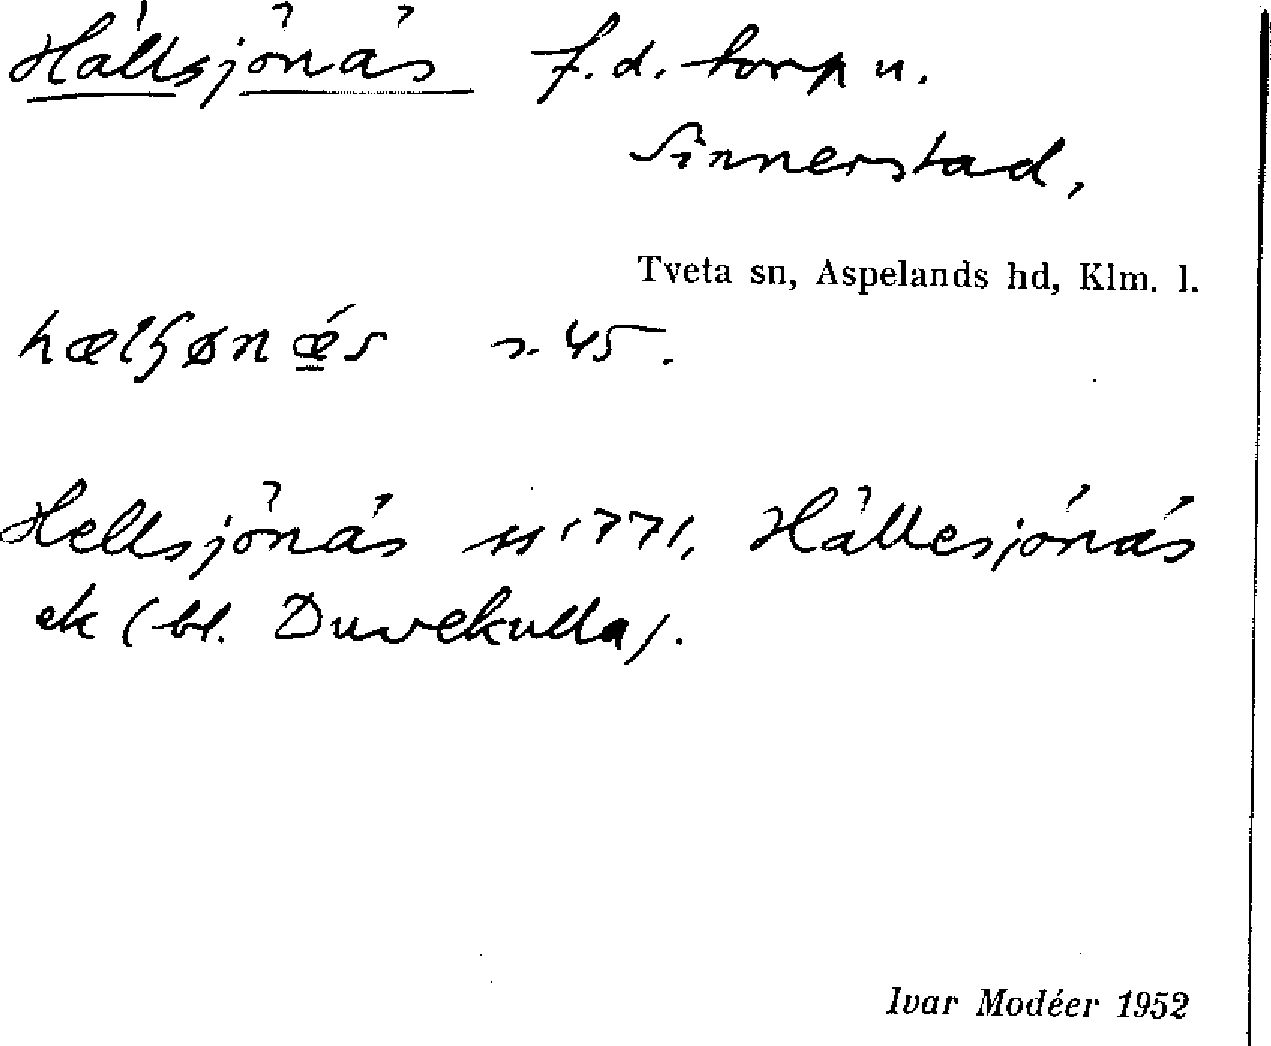 Hällsjönäs f.d. torp u.
Sinnerstad,
Tveta sn, Aspelands hd, Klm. l.
s. 45.
Hellsjönäs 1771, Hällesjönäs
ek (bl. Duvekulla).
Ivar Modéer 1952